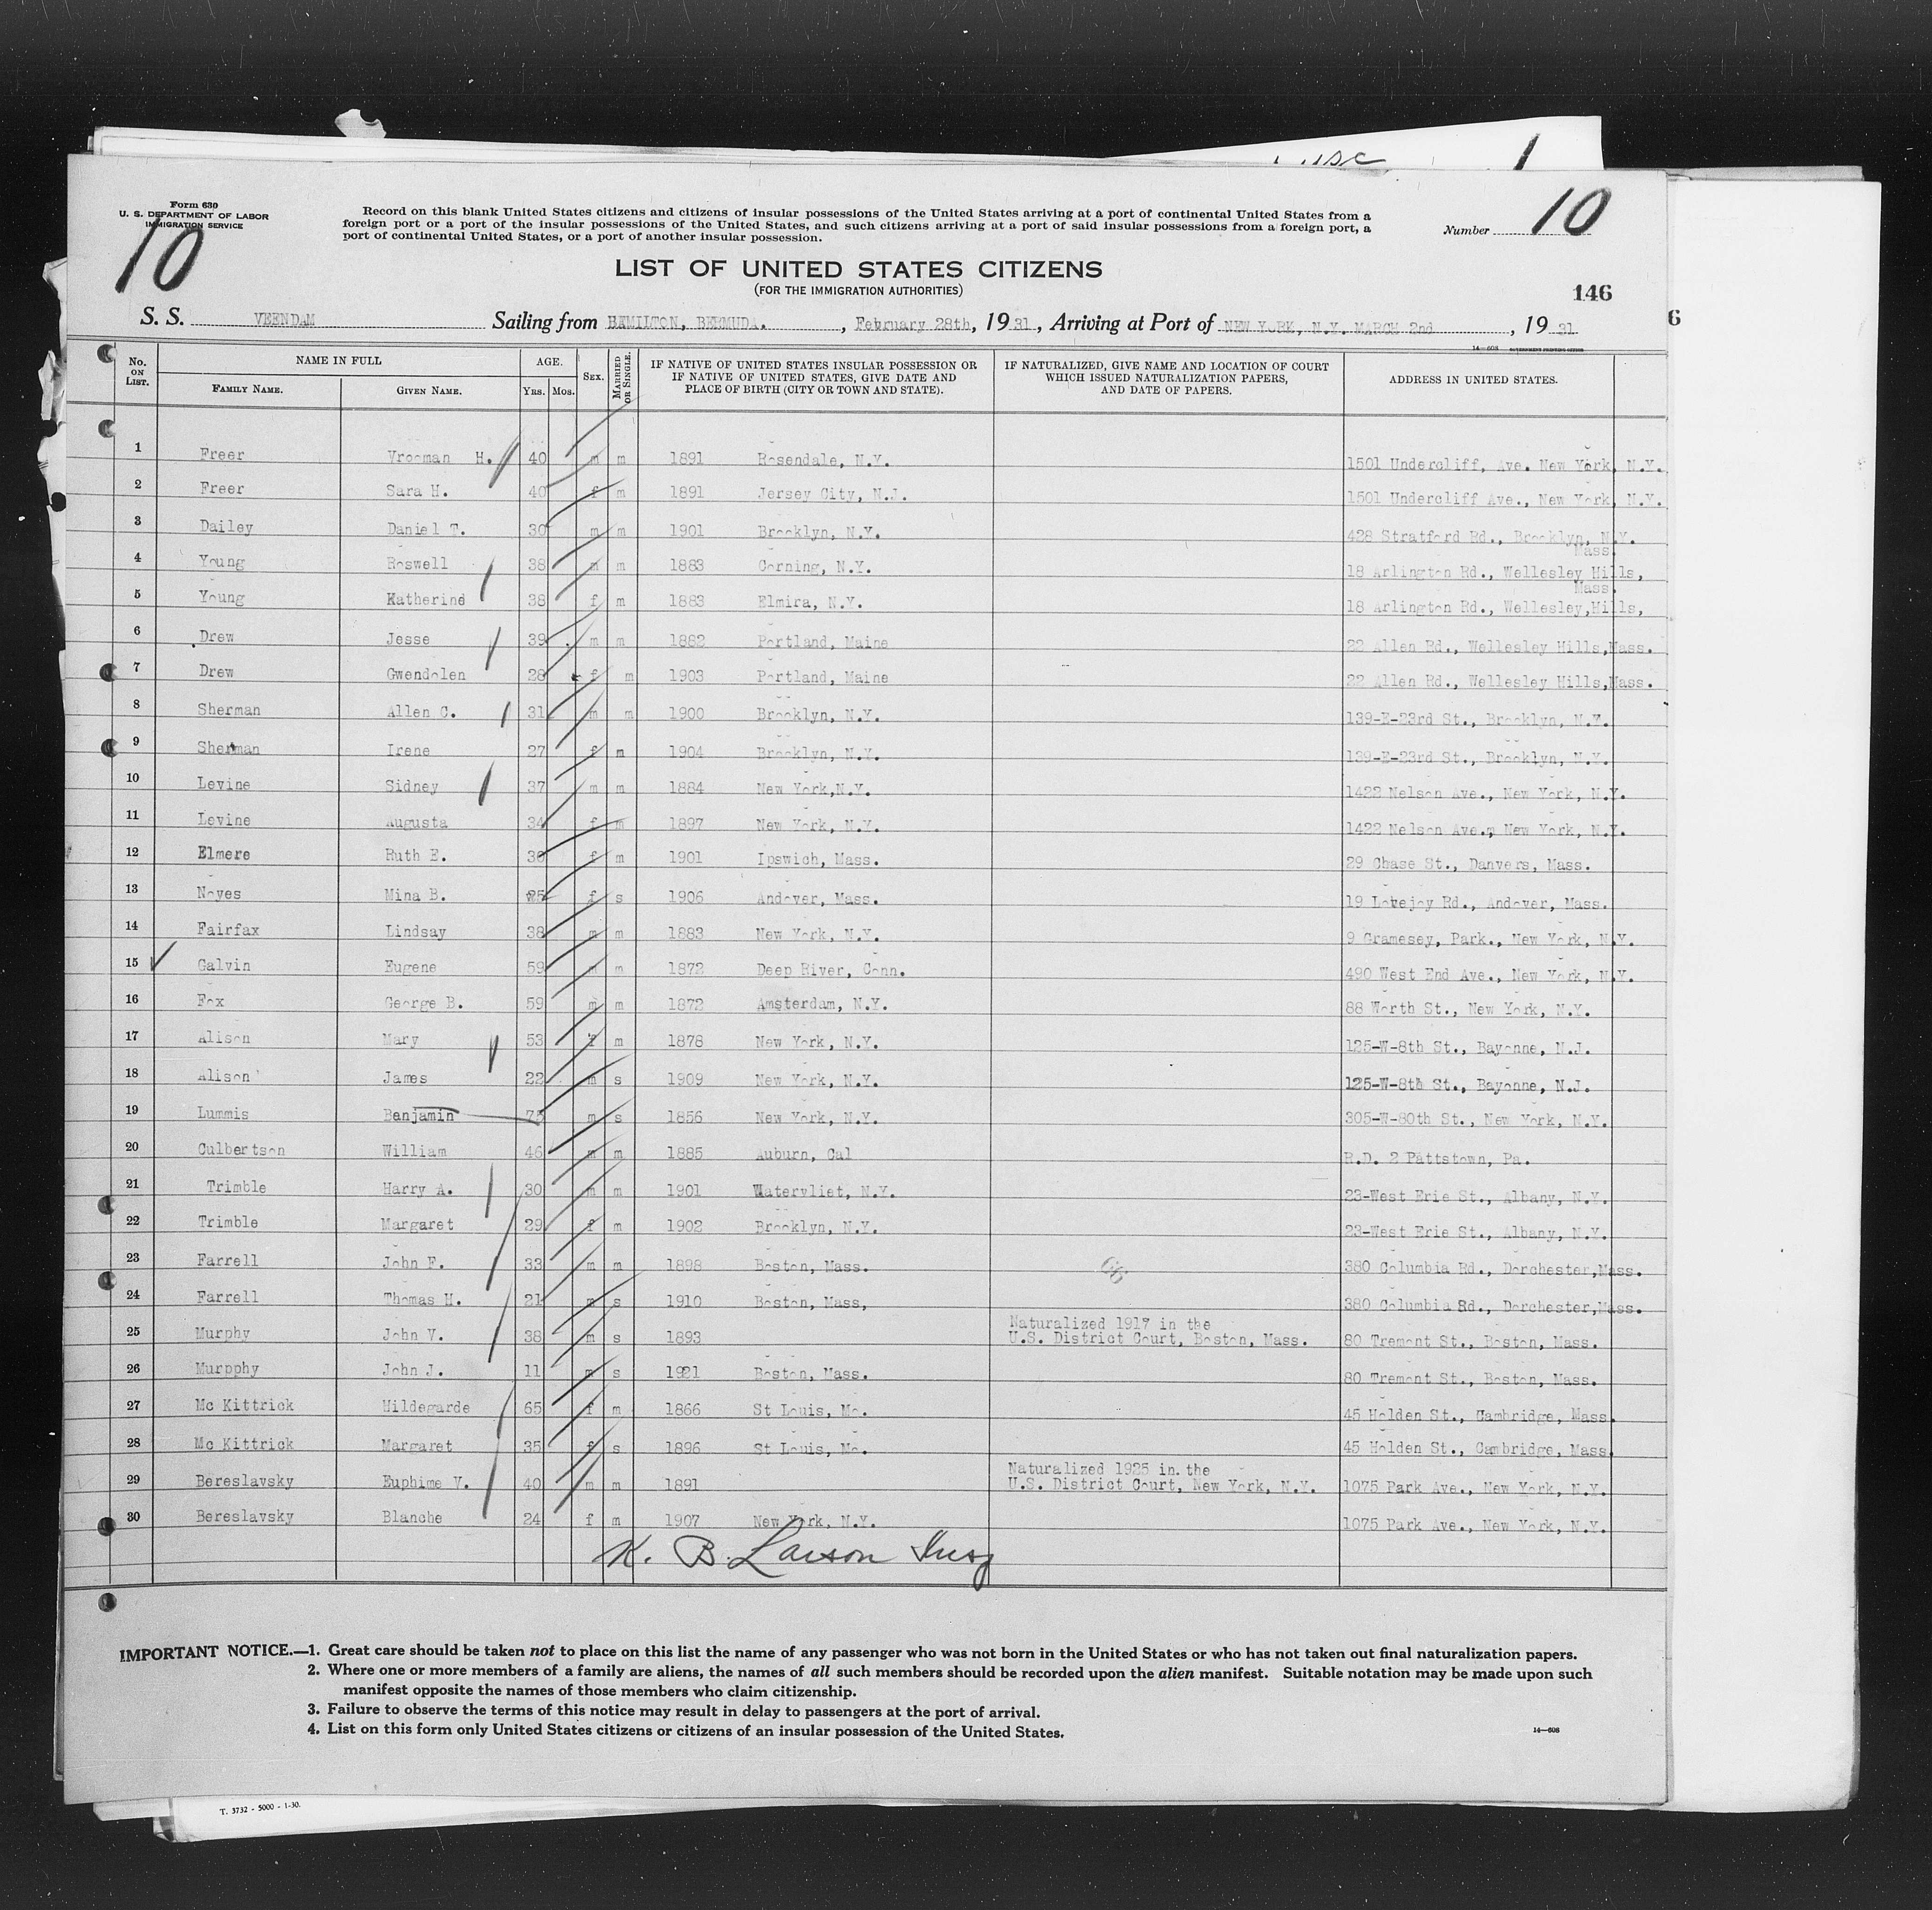 Form 630
U. S. DEPARTMENT OF LABOR
IMMIGRATION SERVICE
10
Record on this blank United States citizens and citizens of insular possessions of the United States arriving at a port of continental United States from a
foreign port or a port of the insular possessions of the United States, and such citizens arriving at a port of said insular possessions from a foreign port, a
port of continental United States, or a port of another insular possession.
Number 10
LIST OF UNITED STATES CITIZENS
(FOR THE IMMIGRATION AUTHORITIES)
146
6
S. S. VEENDAM Sailing from HEMILTON, BERMUDA. , February 28th, 1931, Arriving at Port of NEW YORK, N.Y. MARCH 2nd , 1931
14—608 GOVERNMENT PRINTING OFFICE
No. ON LIST. NAME IN FULL AGE. SEX. MARRIED OR SINGLE. IF NATIVE OF UNITED STATES INSULAR POSSESSION OR IF NATIVE OF UNITED STATES, GIVE DATE AND PLACE OF BIRTH (CITY OR TOWN AND STATE). IF NATURALIZED, GIVE NAME AND LOCATION OF COURT WHICH ISSUED NATURALIZATION PAPERS, AND DATE OF PAPERS. ADDRESS IN UNITED STATES.
FAMILY NAME. GIVEN NAME. YRS. MOS.
1 Freer Vrooman H. 40 m m 1891 Rosendale, N.Y. 1501 Undercliff, Ave. New York, N.Y.
2 Freer Sara H. 40 f m 1891 Jersey City, N.J. 1501 Undercliff Ave., New York, N.Y.
3 Dailey Daniel T. 30 m m 1901 Brooklyn, N.Y. 428 Stratford Rd., Brooklyn, N.Y.
4 Young Roswell 38 m m 1883 Corning, N.Y. 18 Arlington Rd., Wellesley Hills, Mass.
5 Young Katherine 38 f m 1883 Elmira, N.Y. 18 Arlington Rd., Wellesley,Hills, Mass.
6 Drew Jesse 39 m m 1882 Portland, Maine 22 Allen Rd., Wellesley Hills,Mass.
7 Drew Gwendolen 28 f m 1903 Portland, Maine 22 Allen Rd., Wellesley Hills,Mass.
8 Sherman Allen C. 31 m m 1900 Brooklyn, N.Y. 139-E-23rd St., Brooklyn, N.Y.
9 Sherman Irene 27 f m 1904 Brooklyn, N.Y. 139-E-23rd St., Brooklyn, N.Y.
10 Levine Sidney 37 m m 1884 New York,N.Y. 1422 Nelson Ave., New York, N.Y.
11 Levine Augusta 34 f m 1897 New York, N.Y. 1422 Nelson Ave., New York, N.Y.
12 Elmere Ruth E. 30 f m 1901 Ipswich, Mass. 29 Chase St., Danvers, Mass.
13 Noyes Mina B. 25 f s 1906 Andover, Mass. 19 Lovejoy Rd., Andover, Mass.
14 Fairfax Lindsay 38 m m 1883 New York, N.Y. 9 Gramesey, Park., New York, N.Y.
15 Galvin Eugene 59 m m 1872 Deep River, Conn. 490 West End Ave., New York, N.Y.
16 Fox George B. 59 m m 1872 Amsterdam, N.Y. 88 Worth St., New York, N.Y.
17 Alison Mary 53 f m 1878 New York, N.Y. 125-W-8th St., Bayonne, N.J.
18 Alison James 22 m s 1909 New York, N.Y. 125-W-8th St., Bayonne, N.J.
19 Lummis Benjamin 75 m s 1856 New York, N.Y. 305-W-80th St., New York, N.Y.
20 Culbertson William 46 m m 1885 Auburn, Cal R.D. 2 Pattstown, Pa.
21 Trimble Harry A. 30 m m 1901 Watervliet, N.Y. 23-West Erie St., Albany, N.Y.
22 Trimble Margaret 29 f m 1902 Brooklyn, N.Y. 23-West Erie St., Albany, N.Y.
23 Farrell John F. 33 m m 1898 Boston, Mass. 380 Columbia Rd., Dorchester,Mass.
24 Farrell Thomas H. 21 m s 1910 Boston, Mass, 380 Columbia Rd., Dorchester,Mass.
25 Murphy John V. 38 m s 1893 Naturalized 1917 in the U.S. District Court, Boston, Mass. 80 Tremont St., Boston, Mass.
26 Murpphy John J. 11 m s 1921 Boston, Mass. 80 Tremont St., Boston, Mass.
27 Mc Kittrick Hildegarde 65 f m 1866 St Louis, Mo. 45 Holden St., Cambridge, Mass.
28 Mc Kittrick Margaret 35 f s 1896 St Louis, Mo. 45 Holden St., Cambridge, Mass.
29 Bereslavsky Euphime V. 40 m m 1891 Naturalized 1925 in the U.S. District Court, New York, N.Y. 1075 Park Ave., New York, N.Y.
30 Bereslavsky Blanche 24 f m 1907 New York, N.Y. 1075 Park Ave., New York, N.Y.
K. B. Larson Insp
IMPORTANT NOTICE.—1. Great care should be taken not to place on this list the name of any passenger who was not born in the United States or who has not taken out final naturalization papers.
2. Where one or more members of a family are aliens, the names of all such members should be recorded upon the alien manifest. Suitable notation may be made upon such
manifest opposite the names of those members who claim citizenship.
3. Failure to observe the terms of this notice may result in delay to passengers at the port of arrival.
4. List on this form only United States citizens or citizens of an insular possession of the United States.
14—608
T. 3732 - 5000 - 1-30.